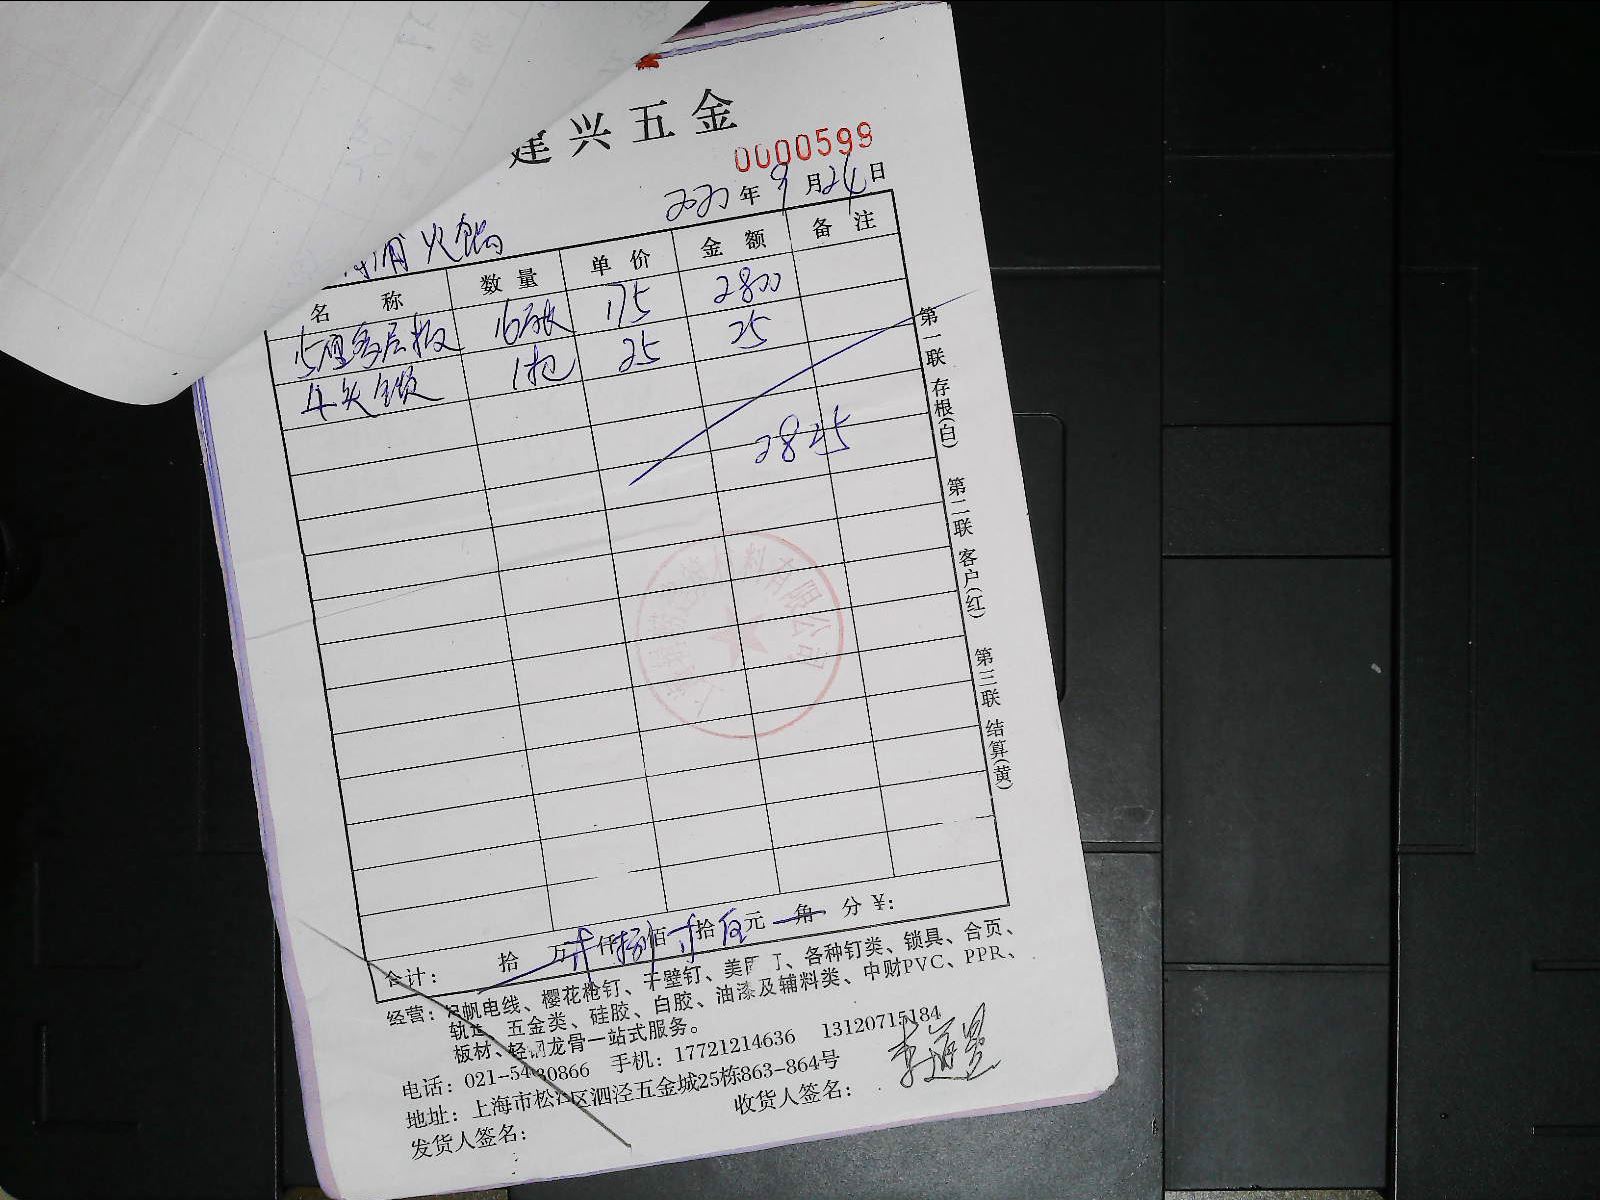 建兴五金
0000599
2020年9月24日
火锅
名称 数量 单价 金额 备注
15厘多层板 16张 175 2800
4头 1把 25 25
2825
第一联 存根(白) 第二联 客户(红) 第三联 结算(黄)
料有限公司
合计: 拾 万 仟 佰 拾 伍元 角 分 ¥:
经营: 帆电线、樱花枪钉、干壁钉、美 钉、各种钉类、锁具、合页、
轨道 五金类、硅胶、白胶、油漆及辅料类、中财PVC、PPR、
板材、轻钢龙骨一站式服务。
电话: 021-54 30866 手机: 17721214636 13120715184
地址: 上海市松江区泗泾五金城25栋863-864号
发货人签名: 收货人签名: